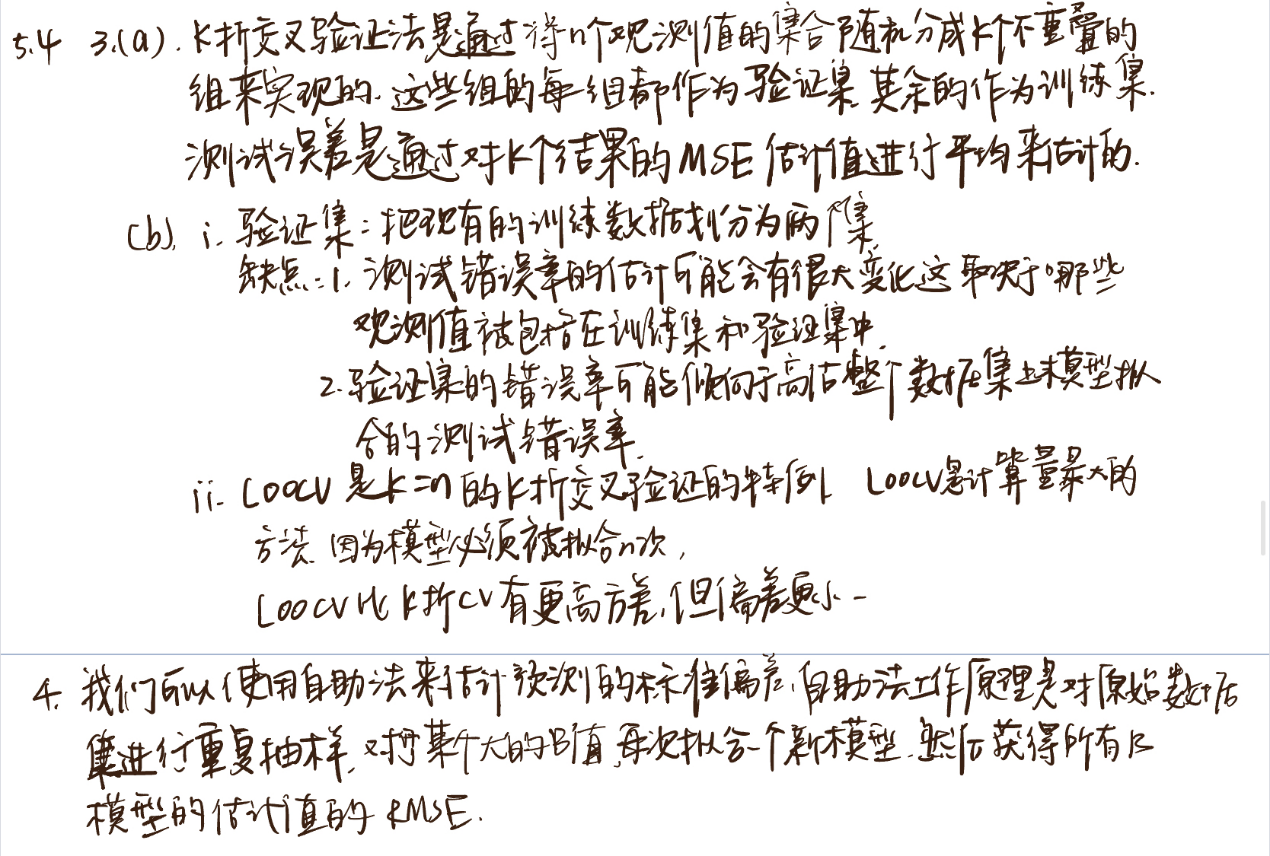 5.4 3.(a). K折交叉验证法是通过将n个观测值的集合随机分成k个不重叠的
组来实现的. 这些组的每一组都作为验证集 其余的作为训练集.
测试误差是通过对K个结果的MSE估计值进行平均来估计的.
(b). i. 验证集: 把现有的训练数据划分为两个集
缺点: 1. 测试错误率的估计可能会有很大变化这取决于哪些
观测值被包括在训练集和验证集中.
2. 验证集的错误率可能倾向于高估整个数据集上模型拟
合的测试错误率.
ii. LOOCV是k=n的K折交叉验证的特例 LOOCV是计算量最大的
方法. 因为模型必须被拟合n次,
LOOCV比K折CV有更高方差, 但偏差更小-
4. 我们可以使用自助法来估计预测的标准偏差. 自助法工作原理是对原始数据
集进行重复抽样. 对于某个大的B值 每次拟合一个新模型. 然后获得所有B
模型的估计值的RMSE.